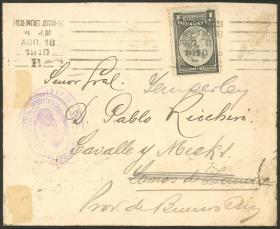 BUENOS AIRES
4 AM
AGO. 18
1910
Señor Gral. Temperley
D. Pablo Riccheri
Lavalle y Meeks
Lomas de Zamora
Prov. de Buenos Aires